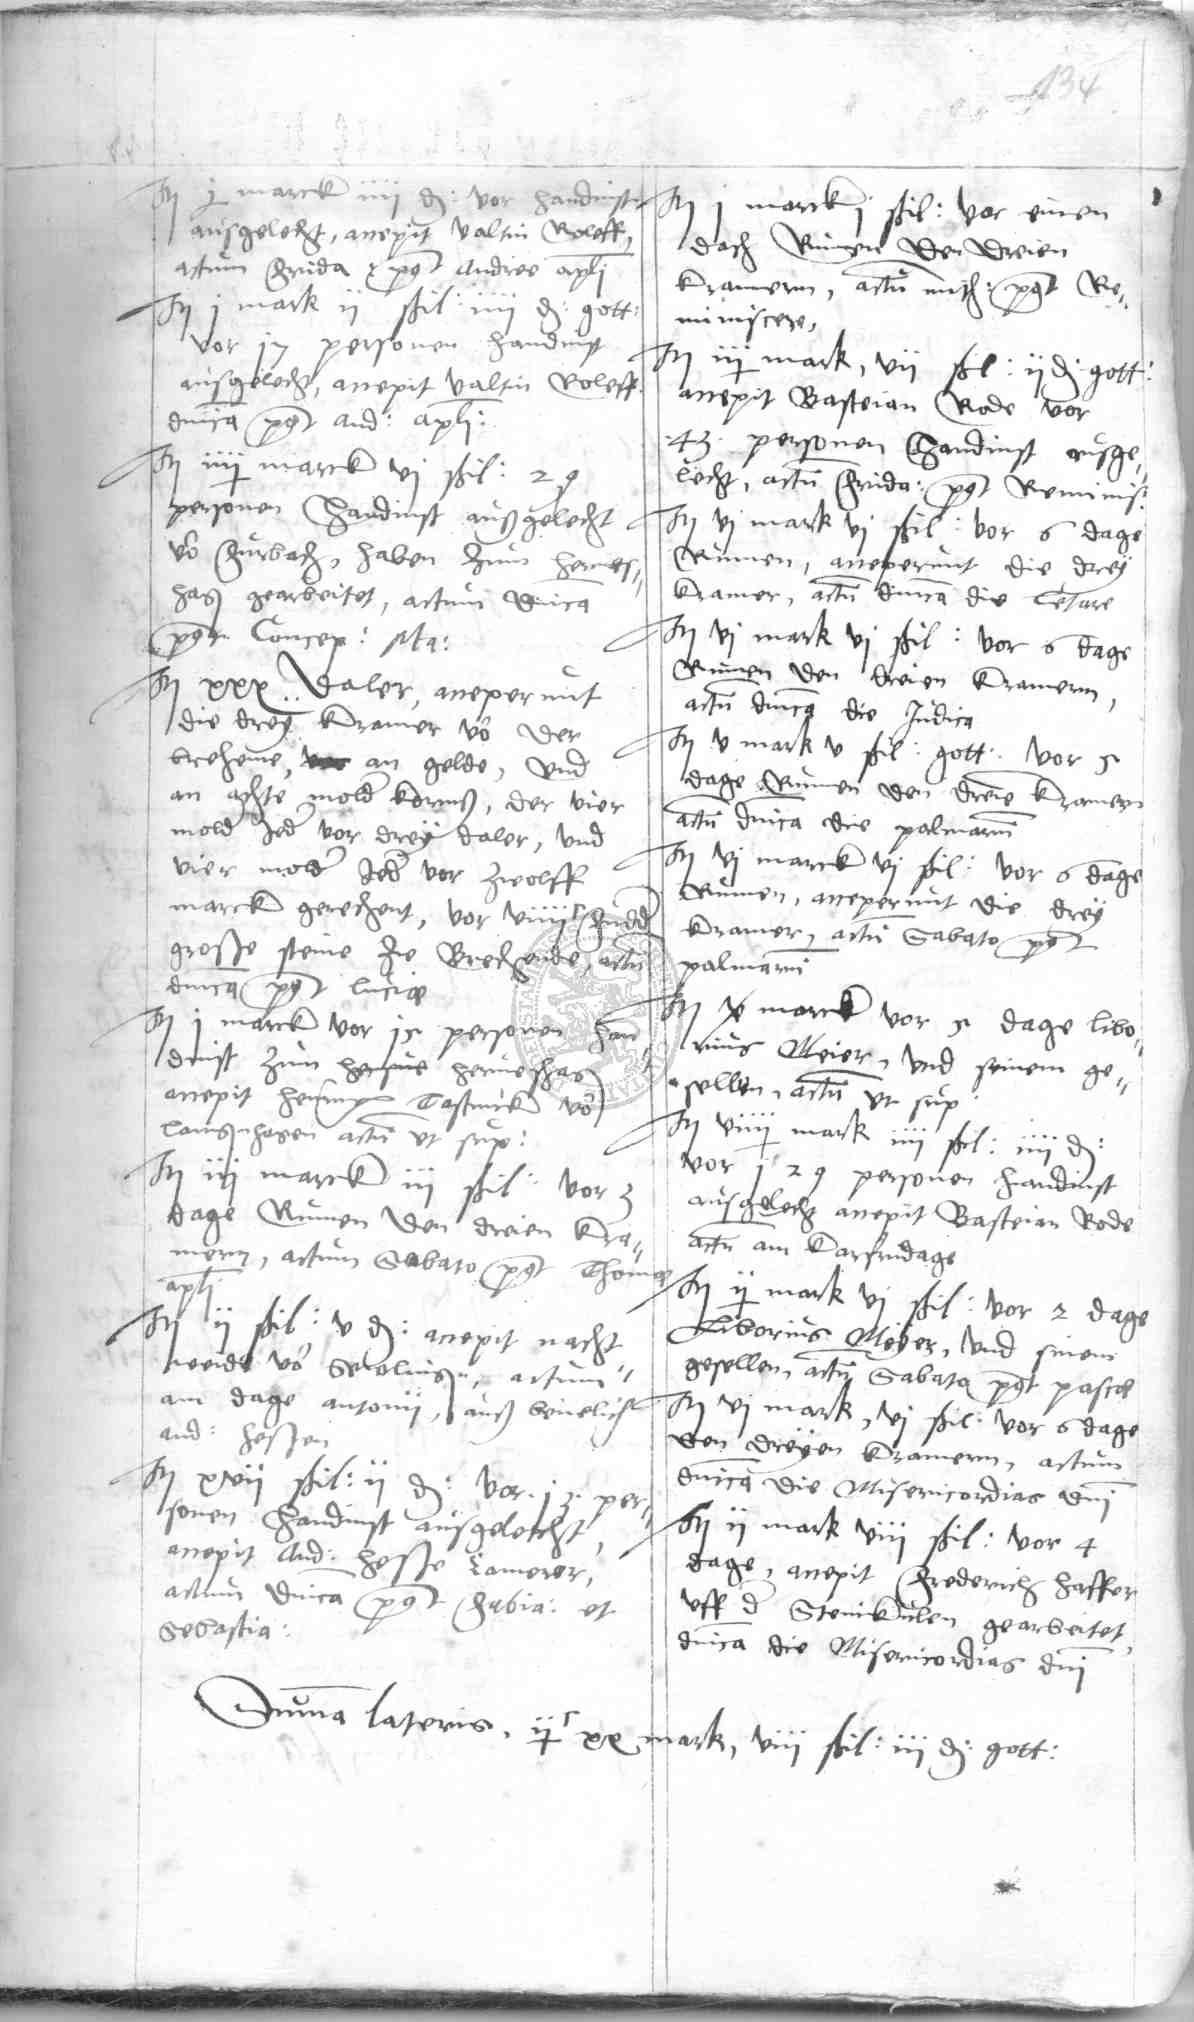 134
It j marck iiij d: vor handinst
ausgelecht, accepit Valtin Roleff,
actum frida post Andree apli
It j mark ij ßil: iiij d: gott:
vor 17 personen handinst
ausgelecht, accepit Valtin Roleff
dnica post And: apli:
It iiij marck vj ßil: 29
personen handinst außgelecht
vo Furbach, haben zum
gearbeitet, actum dnica
post Concep: Ma:
It xxx daler, acceperunt
die drey kramer vo der
an gelde, und
an achte mold korns, der vier
mold Jed vor drey daler, und
vier mold Jed vor zwolff
marck gerechent, vor
große steine zu Brechende, actu
dnica post lucie
It j marck vor 15 personen han
dinst zum
accepit vo
actu ut sup:
It iij marck iij ßil: vor 3
dage Rumen den dreien kra
mern, actum Sabato post Thome
apli
It ij ßil: v d: accepit nacht
vo actum
am dage antonij, auß bevelich
and: heßen
It xvij ßil: ij d: vor 13 per
sonen handinst ausgelecht,
accepit And: heße Camerer,
actum dnica post Fabia: et
Sebastia:
It j mark j ßil: vor einen
dach Rumen den dreien
kramern, actu mith: post Re
miniscere,
It iij mark, vij ßil: ij d: gott:
accepit Basteian Rode vor
43 personen handinst ausge
lecht, actu frida: post Reminis:
It vj mark vj ßil: vor 6 dage
Rumen, acceperunt die drey
kramer, actu dnica die Letare
It vj mark vj ßil: vor 6 dage
Rumen den dreien kramern,
actu dnica die Judica
It v mark v ßil: gott: vor 5
dage Rumen den dreie kramern
actu dnica die palmaru
It vj marck vj ßil: vor 6 dage
Rumen, acceperunt die drey
kramer, actu Sabato post
palmaru
It marck vor 5 dage libo
rius Meier, und seinem ge
sellen, actu ut sup:
It viiij mark iiij ßil: iiij d:
vor 129 personen handinst
ausgelecht accepit Basteian Rode
actu am karfridage
It ij mark vj ßil: vor 2 dage
Liborius Meyer, und sinem
gesellen, actu Sabato post pasce
It vj mark, vj ßil: vor 6 dage
den dreyen kramern, actum
dnica die Misericordias dni
It ij mark viij ßil: vor 4
dage, accepit Frederich haffer
uff d Steinkulen gearbeitet,
dnica die Misericordias dni
Suma lateris, ij c xx mark, viij ßil: iij d: gott: